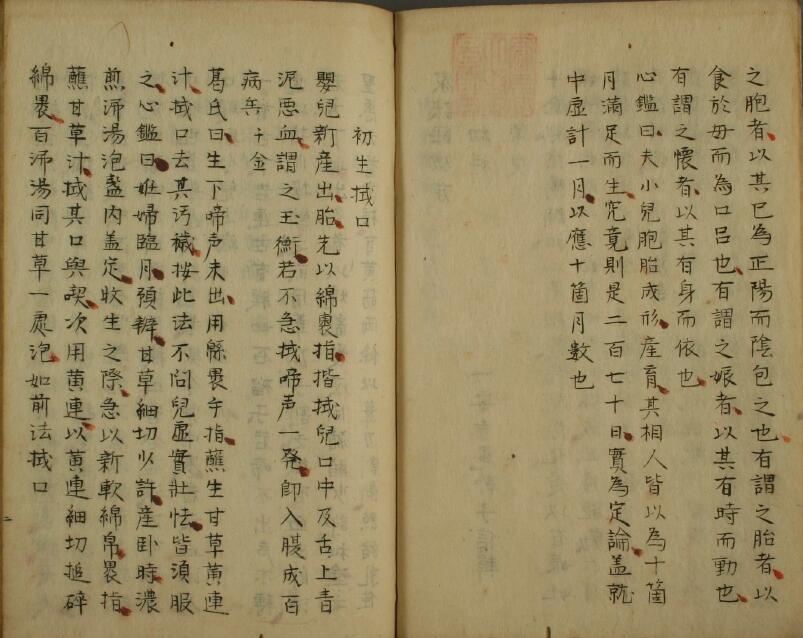 之胞者以其已為正陽而陰包之也有謂之胎者以
食於母而為口呂也有謂之娠者以其有時而動也
有謂之懷者以其有身而依也
心鑑曰夫小兒胞胎成形產育其相人皆以為十箇
月滿足而生究竟則是二百七十日實為定論盖就
中虛計一月以應十箇月數也
初生拭口
嬰兒新産出胎先以綿裹指揩拭兒口中及舌上青
泥悪血謂之玉衡若不急拭啼声一発即入腹成百
病矣千金
葛氏曰生下啼声未出用緜褁手指蘸生甘草黄連
汁拭口去其汚穢按此法不问兒虚實壯怯皆湏服
之心鑑曰姙婦臨月預辦甘草細切少許産卧時濃
煎沸湯泡盞内盖定收生之際急以新軟綿帛褁指
蘸甘草汁拭其口與喫次用黄連以黄連細切搥碎
綿褁百沸湯同甘草一處泡如前法拭口